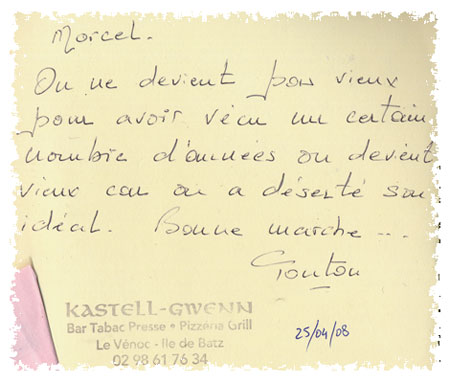 Marcel.
On ne devient pas vieux
pour avoir vécu un certain
nombre d'années on devient
vieux car on a déserté son
idéal. Bonne marche ...
Tonton
KASTELL-GWENN
Bar Tabac Presse • Pizzéria Grill
Le Vénoc - Ile de Batz
02 98 61 76 34
25/04/08